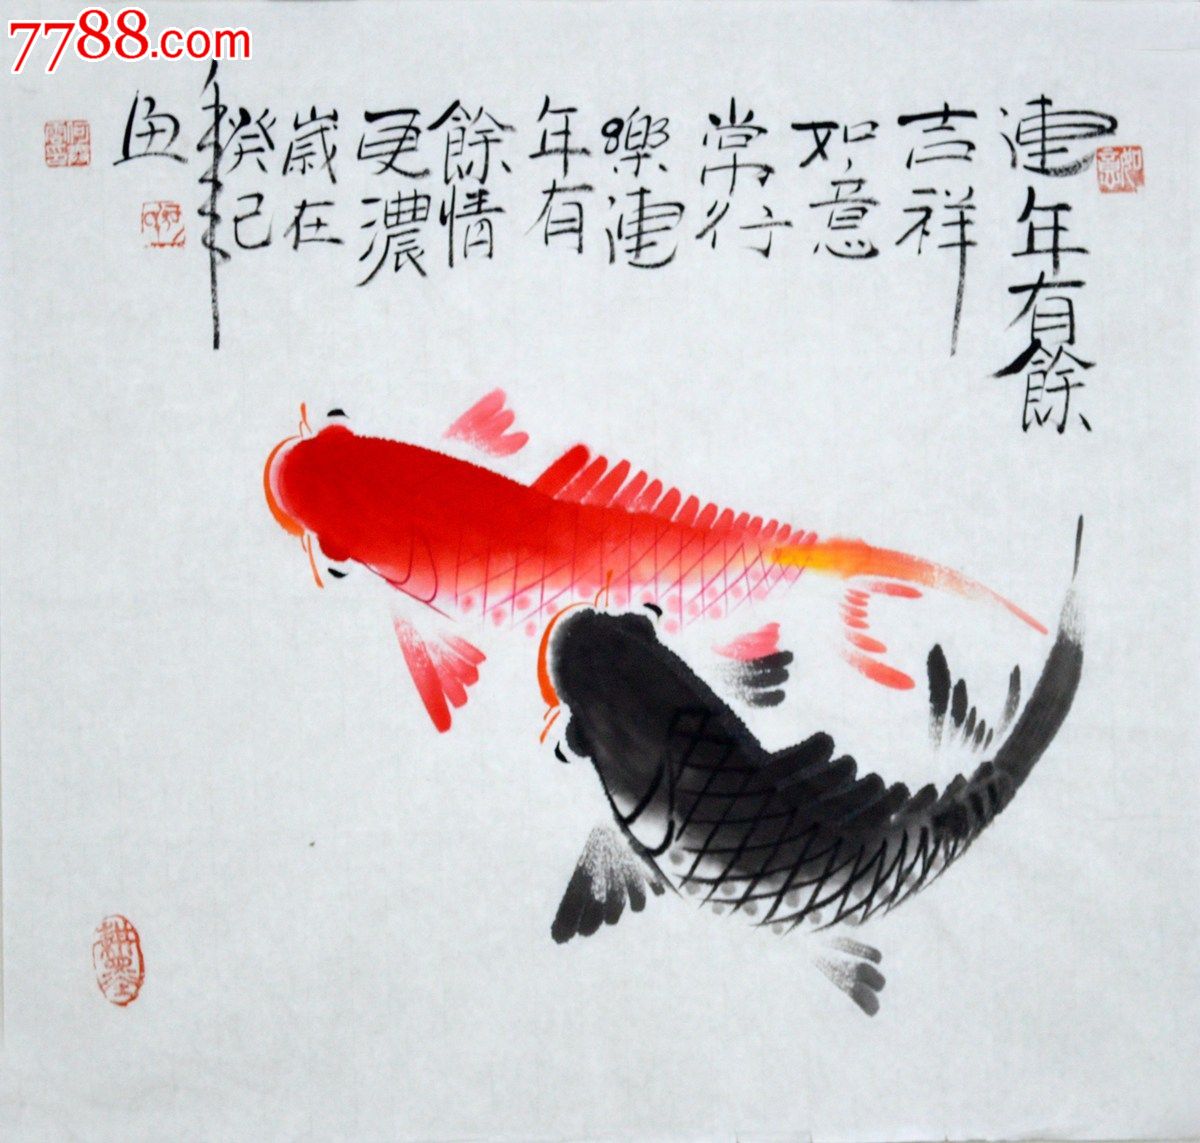 7788.com
連年有餘
如意
吉祥
如意
常行
樂連
年有
餘情
更濃
歲在
癸巳